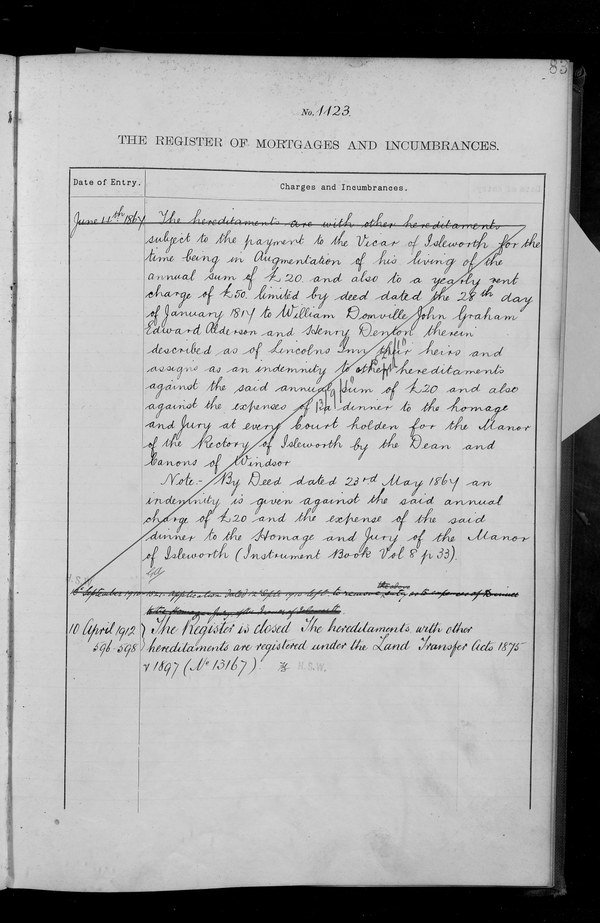 83
No. 1123.
THE REGISTER OF MORTGAGES AND INCUMBRANCES.
Date of Entry.
Charges and Incumbrances.
June 11th 1867
The hereditaments are with other hereditaments
subject to the payment to the Vicar of Isleworth for the
time being in Augmentation of his living of the
annual sum of £20 and also to a yearly rent
charge of £50 limited by deed dated the 28th day
of January 1817 to William Domville John Graham
Edward Alderson and Henry Denton therein
described as of Lincolns Inn their heirs and
assigns as an indemnity to other hereditaments
against the said annual sum of £20 and also
against the expenses of a dinner to the homage
and Jury at every Court holden for the Manor
of the Rectory of Isleworth by the Dean and
Canons of Windsor
Note:- By Deed dated 23rd May 1867 an
indemnity is given against the said annual
charge of £20 and the expense of the said
dinner to the Homage and Jury of the Manor
of Isleworth (Instrument Book Vol 8 p 33).
September 1910
10 April 1912
596-598
The Register is closed The hereditaments with other
hereditaments are registered under the Land Transfer Acts 1875
& 1897 (No 13167)
H.S.W.